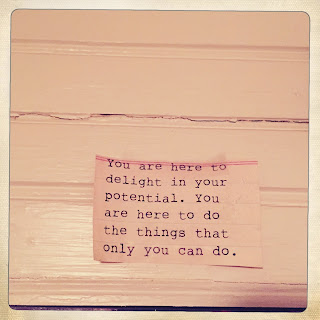 You are here to
delight in your
potential. You
are here to do
the things that
only you can do.